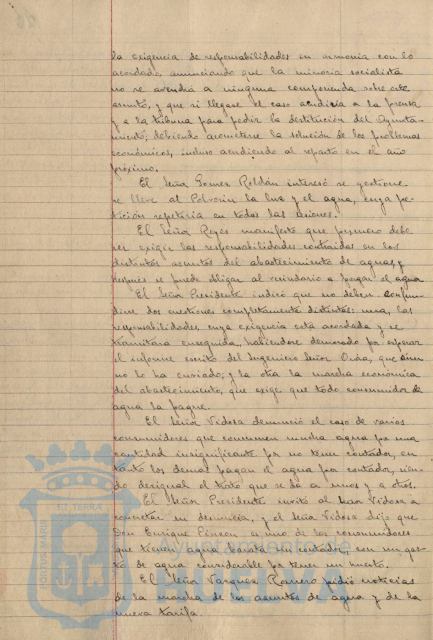 la exigencia de responsabilidades en armonia con lo
acordado, anunciando que la minoria socialista
no se avendrá a ninguna componenda sobre este
asunto, y que si llegase el caso acudiria a la prensa
y a la tribuna para pedir la destitución del Ayunta-
miento; debiendo acometerse la solución de los problemas
económicos, incluso acudiendo al reparto en el año
próximo.
El Señor Gomez Roldán interesó se gestione
se lleve al Polvorin la luz y el agua, cuya pe-
tición repetiria en todas las sesiones.
El Señor Reyes manifestó que primero debe
ser exigir las responsabilidades contraidas en los
distintos asuntos del abastecimiento de aguas, y
despues se puede obligar al vecindario a pagar el agua
El Señor Presidente indicó que no deben confun-
dirse dos cuestiones completamente distintas: una, las
responsabilidades, cuya exigencia está acordada y se
tramitará enseguida, habiendose demorado por esperar
el informe escrito del Ingeniero Señor que aun
no lo ha enviado; y la otra la marcha económica
del abastecimiento, que exige que todo consumidor de
agua la pague.
El Señor Vidosa denunció el caso de varios
consumidores que consumen mucha agua por una
cantidad insignificante por no tener contador, en
tanto los demas pagan el agua por contador, sien-
do desigual el trato que se dá a unos y a otros.
El Señor Presidente invitó al Señor Vidosa a
concretar su denuncia, y el Señor Vidosa dijo que
Don Enrique Pinzon es uno de los consumidores
que tienen agua barata sin contador, con un gas-
to de agua considerable por tener un huerto.
El Señor Vazquez Romero pidió noticias
de la marcha de los asuntos de agua y de la
nueva tarifa.
PORTUS MARIS
ET TERRÆ
Ayuntamiento de